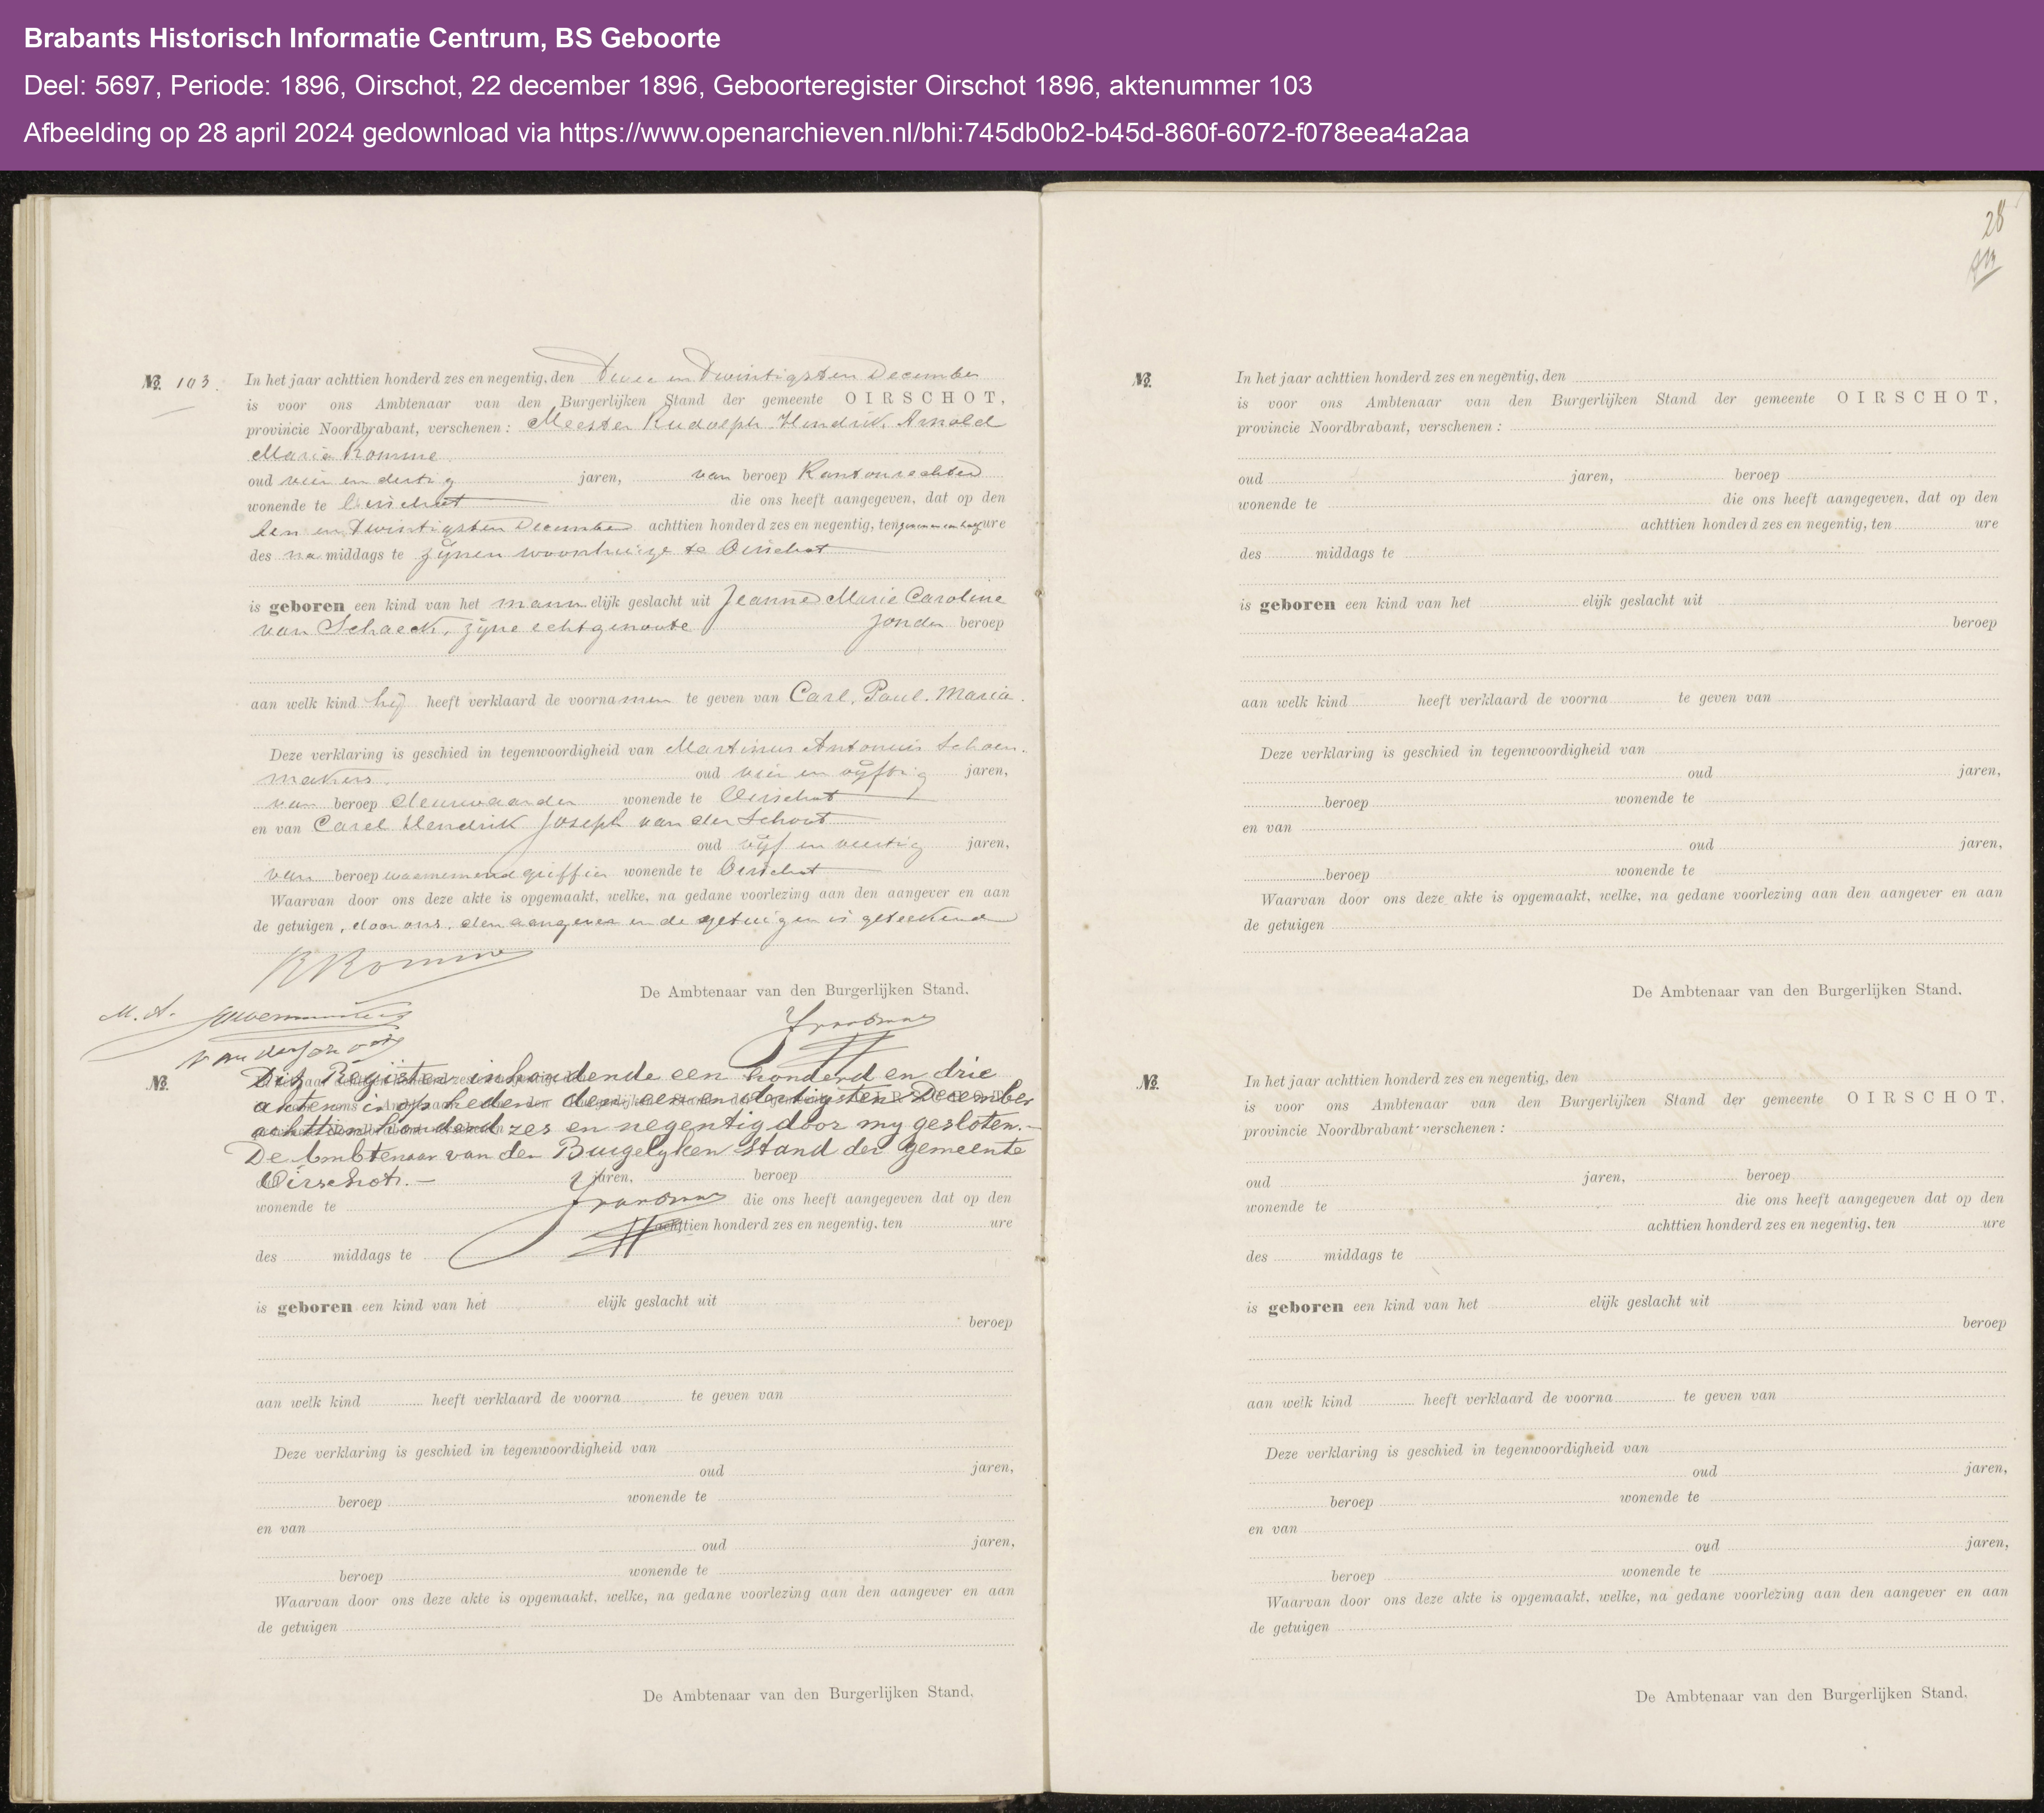 Brabants Historisch Informatie Centrum, BS Geboorte
Deel: 5697, Periode: 1896, Oirschot, 22 december 1896, Geboorteregister Oirschot 1896, aktenummer 103
Afbeelding op 28 april 2024 gedownload via https://www.openarchieven.nl/bhi:745db0b2-b45d-860f-6072-f078eea4a2aa
No. 103.
In het jaar achttien honderd zes en negentig, den Twee en Twintigsten December
is voor ons Ambtenaar van den Burgerlijken Stand der gemeente OIRSCHOT,
provincie Noordbrabant, verschenen : Meester Rudolph Hendrik Arnold
Maria Romme
oud vier en dertig jaren, van beroep Kantonrechter
wonende te Oirschot die ons heeft aangegeven, dat op den
Een en Twintigsten December achttien honderd zes en negentig, ten ure
des na middags te zijnen woonhuize te Oirschot
is geboren een kind van het mann elijk geslacht uit Jeanne Marie Caroline
van Schaeck, zijne echtgenoote zonder beroep
aan welk kind hij heeft verklaard de voornamen te geven van Carl, Paul. Maria.
Deze verklaring is geschied in tegenwoordigheid van Martinus Antonius Schoen-
makers oud vier en vijftig jaren,
van beroep deurwaarder wonende te Oirschot
en van Carel Hendrik Joseph van der Schoot
oud vijf en veertig jaren,
van beroep waarnemend griffier wonende te Oirschot
Waarvan door ons deze akte is opgemaakt, welke, na gedane voorlezing aan den aangever en aan
de getuigen, door ons, den aangever en de getuigen is geteekend
RRomme
De Ambtenaar van den Burgerlijken Stand.
M. A. Schoenmakers
van der Schoot
No.
Dit Register inhoudende een honderd en drie
akten is op heden den een en dertigsten December
achttien honderd zes en negentig door my gesloten.-
De Ambtenaar van den Burgelyken Stand der gemeente
Oirschot. -
jaren, beroep
wonende te die ons heeft aangegeven dat op den
achttien honderd zes en negentig, ten ure
des middags te
is geboren een kind van het elijk geslacht uit
beroep
aan welk kind heeft verklaard de voorna te geven van
Deze verklaring is geschied in tegenwoordigheid van
oud jaren,
beroep wonende te
en van
oud jaren,
beroep wonende te
Waarvan door ons deze akte is opgemaakt, welke, na gedane voorlezing aan den aangever en aan
de getuigen
De Ambtenaar van den Burgerlijken Stand.
28
No.
In het jaar achttien honderd zes en negentig, den
is voor ons Ambtenaar van den Burgerlijken Stand der gemeente OIRSCHOT,
provincie Noordbrabant, verschenen :
oud jaren, beroep
wonende te die ons heeft aangegeven, dat op den
achttien honderd zes en negentig, ten ure
des middags te
is geboren een kind van het elijk geslacht uit
beroep
aan welk kind heeft verklaard de voorna te geven van
Deze verklaring is geschied in tegenwoordigheid van
oud jaren,
beroep wonende te
en van
oud jaren,
beroep wonende te
Waarvan door ons deze akte is opgemaakt, welke, na gedane voorlezing aan den aangever en aan
de getuigen
De Ambtenaar van den Burgerlijken Stand.
No.
In het jaar achttien honderd zes en negentig, den
is voor ons Ambtenaar van den Burgerlijken Stand der gemeente OIRSCHOT,
provincie Noordbrabant verschenen :
oud jaren, beroep
wonende te die ons heeft aangegeven dat op den
achttien honderd zes en negentig, ten ure
des middags te
is geboren een kind van het elijk geslacht uit
beroep
aan welk kind heeft verklaard de voorna te geven van
Deze verklaring is geschied in tegenwoordigheid van
oud jaren,
beroep wonende te
en van
oud jaren,
beroep wonende te
Waarvan door ons deze akte is opgemaakt, welke, na gedane voorlezing aan den aangever en aan
de getuigen
De Ambtenaar van den Burgerlijken Stand.